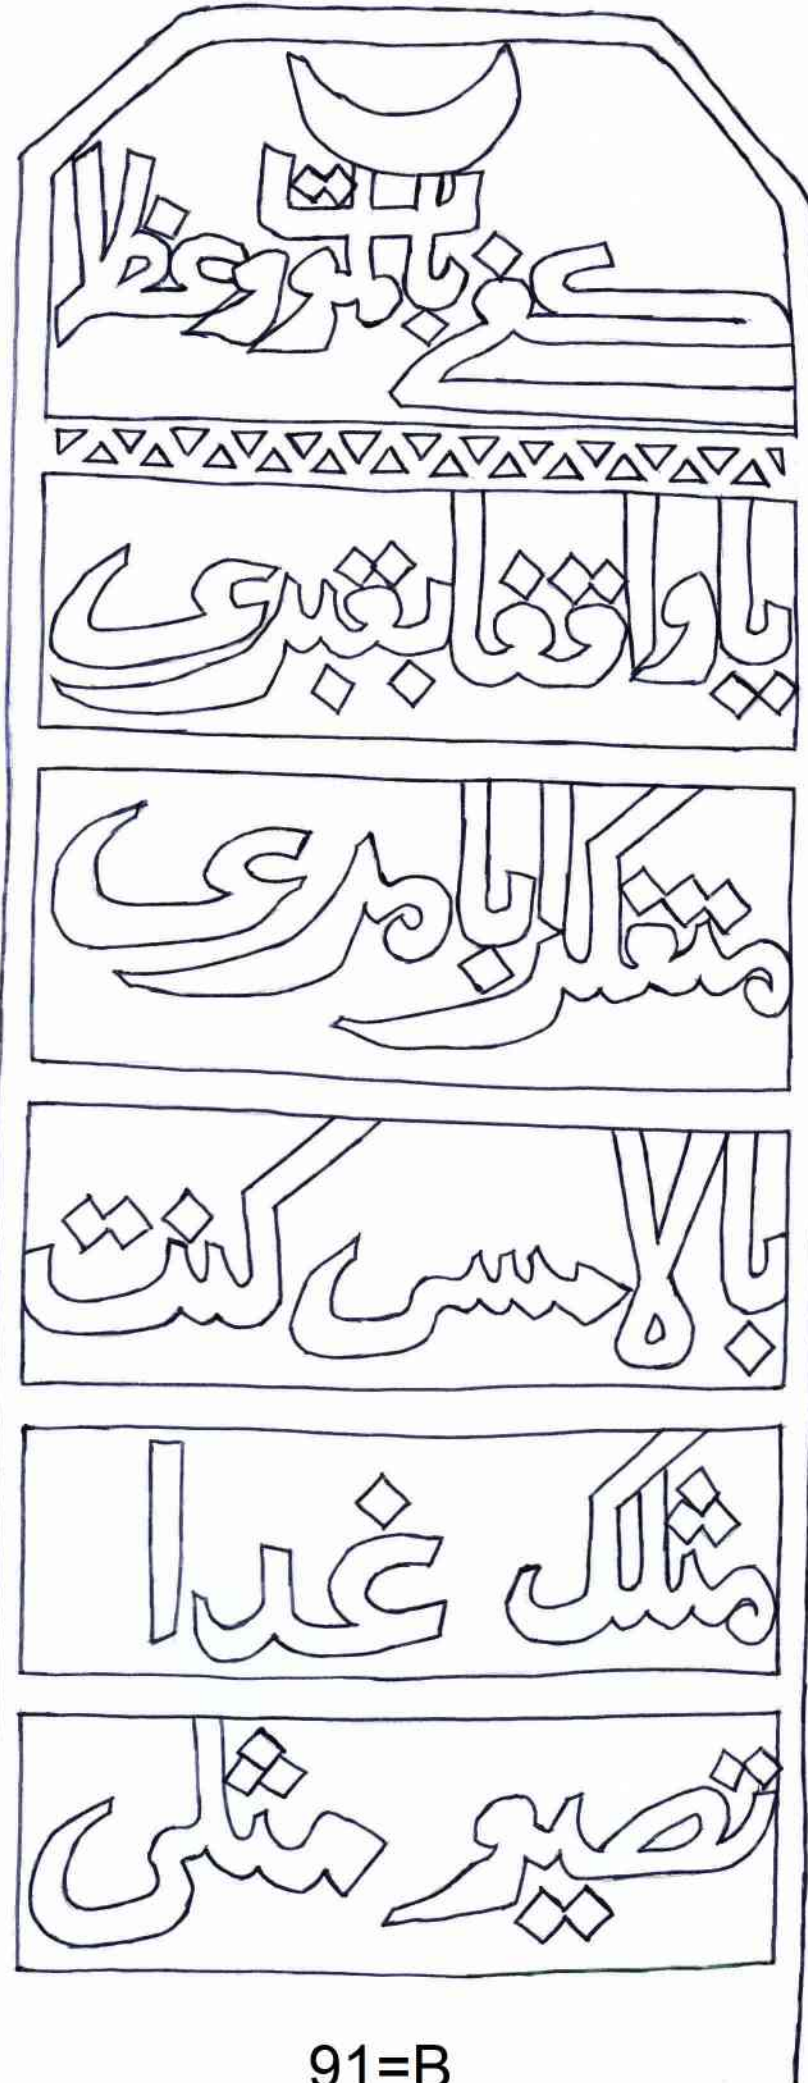 كفى بالموت وعظا
يا واقفا بقبرى
متفكرا بامرى
بالامس كنت
مثلك غدا
تصير مثلى
91=B